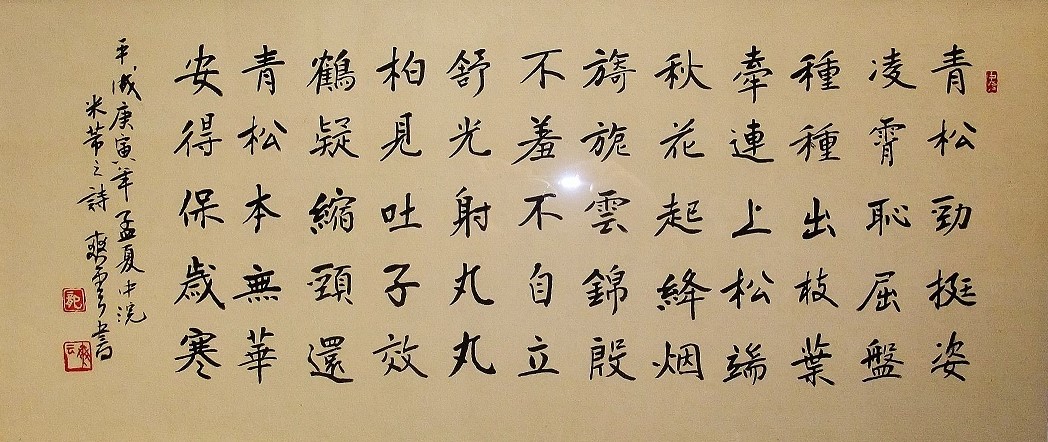 青松勁挺姿
凌霄恥屈盤
種種出枝葉
牽連上松端
秋花起絳烟
旖旎雲錦殷
不羞不自立
舒光射丸丸
柏見吐子效
鶴疑縮頸還
青松本無華
安得保歳寒
平成庚寅年孟夏中浣
米芾之詩 書